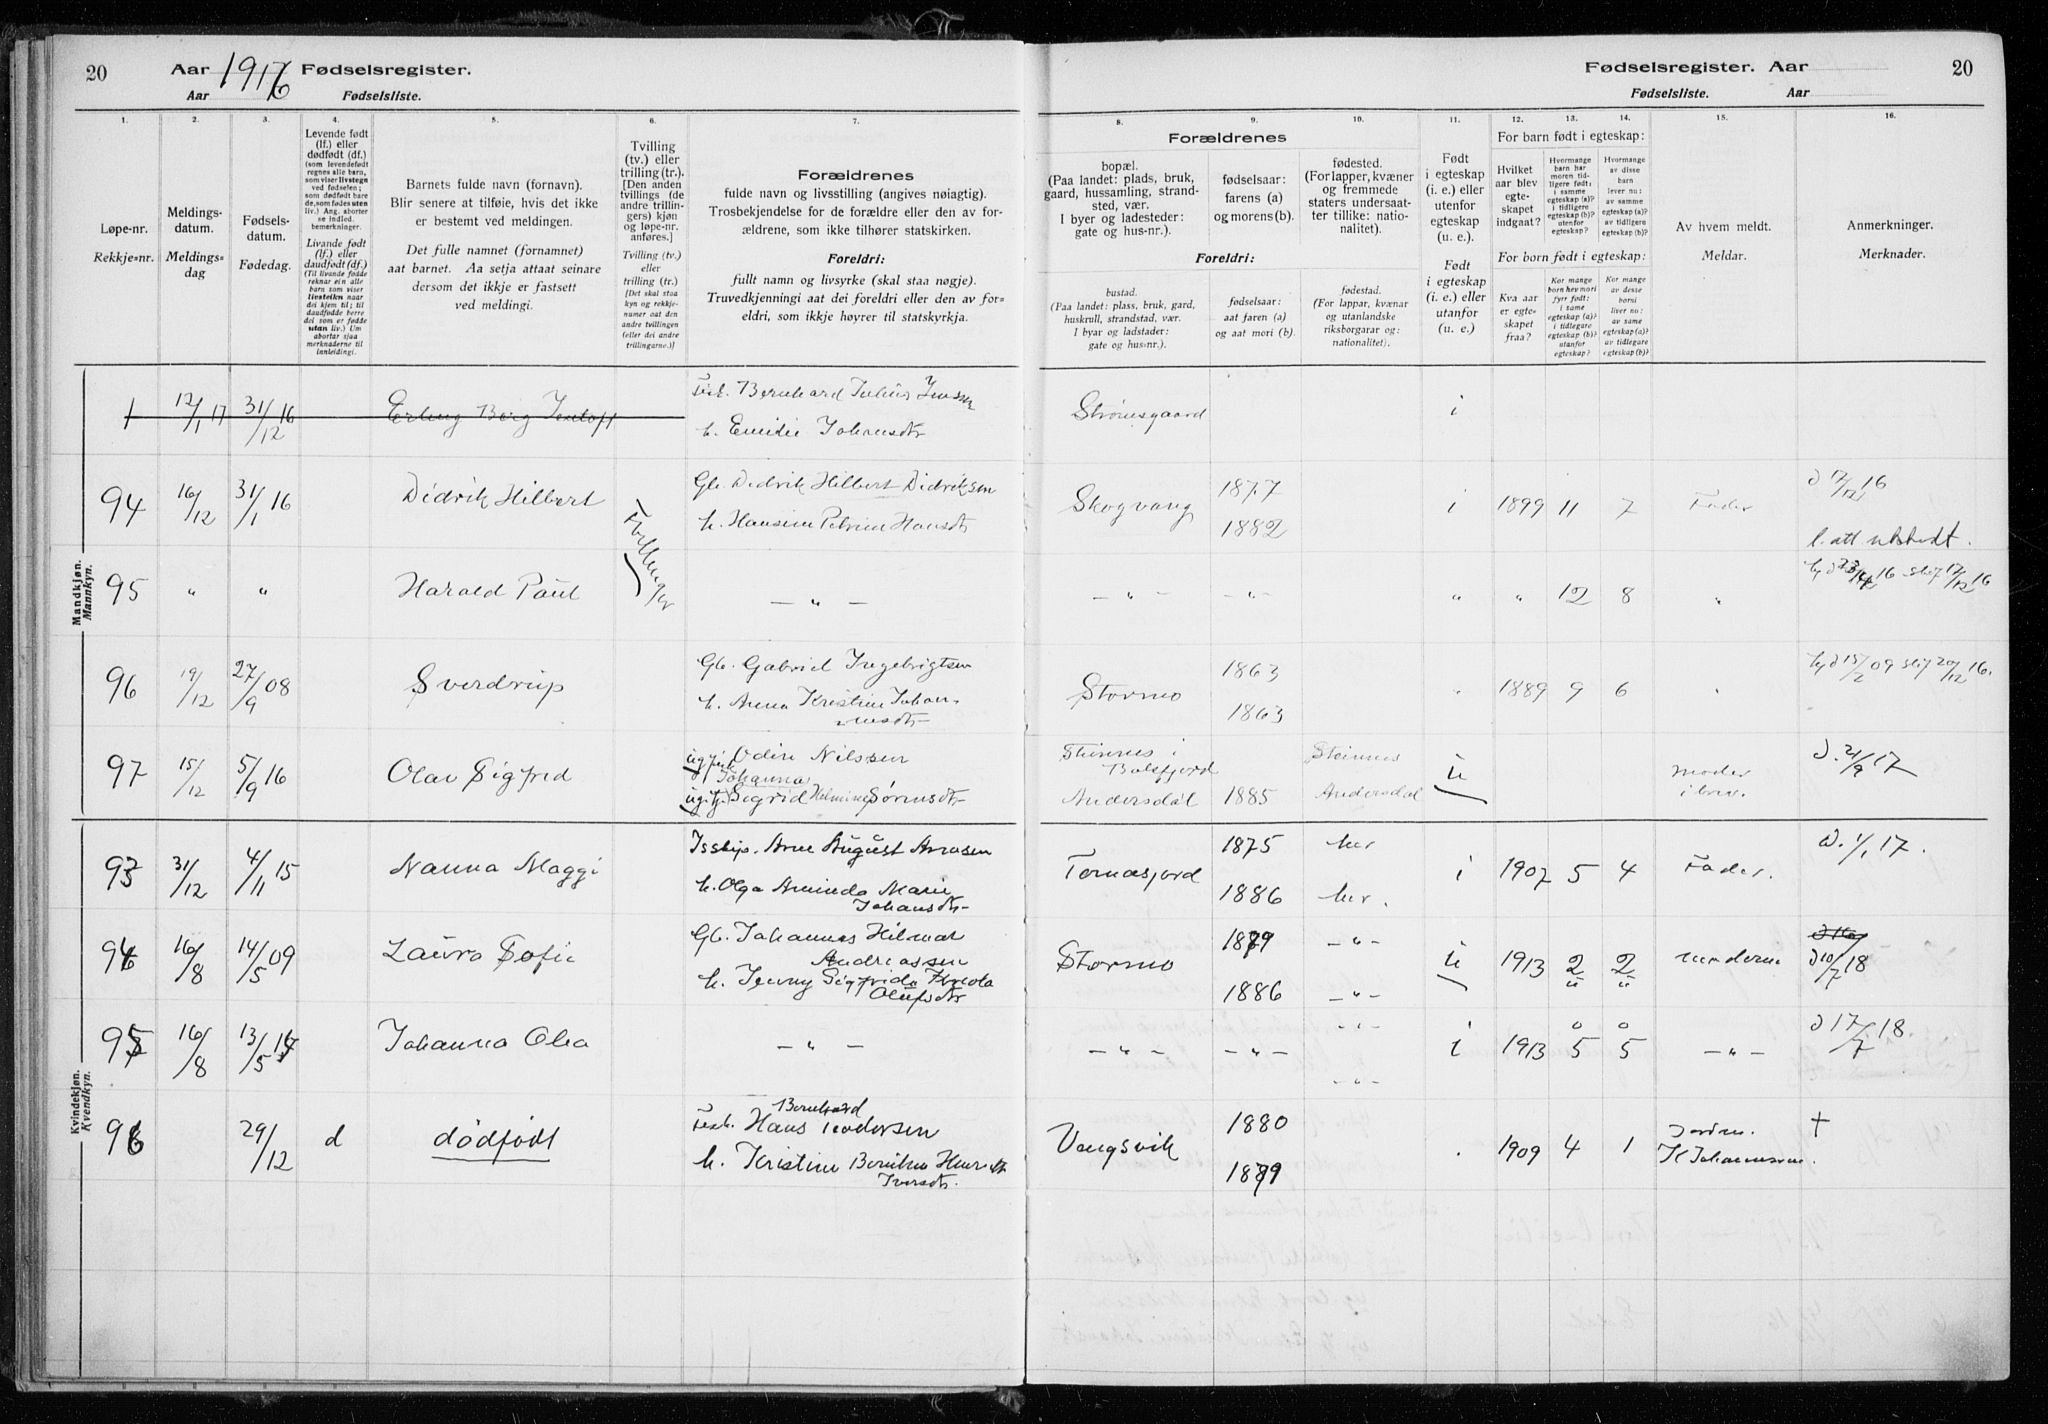 20
Aar 1916 Fødselsregister.
Aar Fødselsliste.
Fødselsregister. Aar
Fødselsliste. Aar
20
1.
Løpe-nr.
Rekkje=nr.
2.
Meldings-
datum.
Meldings=
dag
3.
Fødsels-
datum.
Fødedag.
4.
Levende født
(lf.) eller
dødfødt (df.)
(som levendefødt
regnes alle barn,
som viser livstegn
ved fødselen;
som dødfødt bare
de, som fødes uten
liv.) Ang. aborter
se indled.
bemerkninger.
Livande født
(lf.) eller
daudfødt (df.)
(Til livande fødde
reknar ein alle
born som viser
livsteikn naar
dei kjem til; til
daudfødde berre
dei som er fødde
utan liv.) Um
abortar sjaa
merknaderne til
innleidingi.
5.
Barnets fulde navn (fornavn).
Blir senere at tilføie, hvis det ikke
er bestemt ved meldingen.
Det fulle namnet (fornamnet)
aat barnet. Aa setja attaat seinare
dersom det ikkje er fastsett
ved meldingi.
6.
Tvilling
(tv.) eller
trilling (tr.).
[Den anden
tvillings (de
andre trillin-
gers) kjøn
og løpe-nr.
anføres.]
Tvilling (tv.)
eller
trilling (tr.)
[Det skal staa
kyn og rekkje-
numer aat den
andre tvillingen
(eller dei andre
trillingarne.)]
7.
Forældrenes
fulde navn og livsstilling (angives nøiagtig).
Trosbekjendelse for de forældre eller den av for-
ældrene, som ikke tilhører statskirken.
Foreldri:
fullt namn og livsyrke (skal staa nøgje).
Truvedkjenningi aat dei foreldri eller den av for=
eldri, som ikkje høyrer til statskyrkja.
8.
Forældrenes
bopæl.
(Paa landet: plads, bruk,
gaard, hussamling, strand-
sted, vær.
I byer og ladesteder:
gate og hus-nr.).
Foreldri:
bustad.
(Paa landet: plass, bruk, gard,
huskrull, strandstad, vær.
I byar og ladstader:
gate og hus=nr.).
9.
fødselsaar:
farens (a)
og morens (b).
fødselsaar:
aat faren (a)
og aat mori (b).
10.
fødested.
(For lapper, kvæner
og fremmede
staters undersaat-
ter tillike: natio-
nalitet).
fødestad.
(For lappar, kvænar
og utanlandske
riksborgarar og:
nationalitet).
11.
Født
i egteskap
(i. e.) eller
utenfor
egteskap
(u. e.).
Født
i egteskap
(i. e.) eller
utanfor
(u. e.).
For barn født i egteskap:
12.
Hvilket
aar blev
egte-
skapet
indgaat?
13.
Hvormange
barn har
moren tid-
ligere født:
i samme
egteskap (a)?
i tidligere
egteskap (b)?
utenfor
egteskap?
14.
Hvormange
av disse
barn
lever nu:
av samme
egteskap (a)?
av tidligere
egteskap (b)?
For born født i egteskap:
Kva aar
er egte=
skapet
fraa?
Kor mange
born hev mori
fyrr født:
i same
egteskap (a)?
i tidlegare
egteskap (b)?
utanfor
egteskap?
Kor mange
av desse
borni
liver no:
av same
egteskap (a)?
av tidlegare
egteskap (b)?
15.
Av hvem meldt.
Meldar.
16.
Anmerkninger.
Merknader.
Mandkjøn.
Mannkyn.
1 12/1 17 31/12 16 Erling Berg Jentoft
Fisk. Bernhard Julius Jensen
h. Emilie Johansdtr
Strømsgaard i
94 16/12 31/1 16 Didrik Hilbert Tvillinger
Gb. Didrik Hilbert Didriksen
h. Hansine Petrine Hansdtr
Skogvang 1877
1882
i 1899 11 7 Fader
d 17/12 16
l. att utstedt.
95 " " Harald Paul — " —
— " — — " — " " 12 8 "
hj d 23/4 16 stadf 17/12 16
96 19/12 27/9 08 Sverdrup
Gb. Gabriel Ingebrigtsen
h. Anna Kristine Johan-
nesdtr
Stormo 1863
1863
" 1889 9 6 "
hj d 15/2 09 stadf 20/12 16.
97 15/12 5/9 16 Olav Sigfred
ug fisk Odin Nilssen
Johanna
ug pi Sigrid Helmine Sørensdtr
Steinnes i
Balsfjord
Andersdal 1885
Steinnes
Andersdal
u
moder
i brev.
d. 21/9 17
Kvindekjøn.
Kvendkyn.
93 31/12 4/11 15 Nanna Maggi
Isskip. Arne August Arnesen
h. Olga Aminda Marie
Johansdtr
Tomasjord 1875
1886
her
her.
i 1907 5 4 Fader.
d. 1/1 17.
94 16/8 14/5 09 Laura Sofie
Gb. Johannes Hilmar
Andreassen
h. Jenny Sigfrida
Olufsdtr
Stormo 1879
1886
— " —
— " —
u 1913 2 2 moderen
d 10/7 18
95 16/8 13/5 14 Johanna Olea — " —
— " — — " — i 1913 5 5 — " —
d 17/7 18.
96 29/12 d dødfødt
Bernhard
Fisk. Hans Teodorsen
h. Kristine
Iversdtr.
Vangsvik 1880
1879
. 1909 4 1
Jordm.
K Johannesen.
†